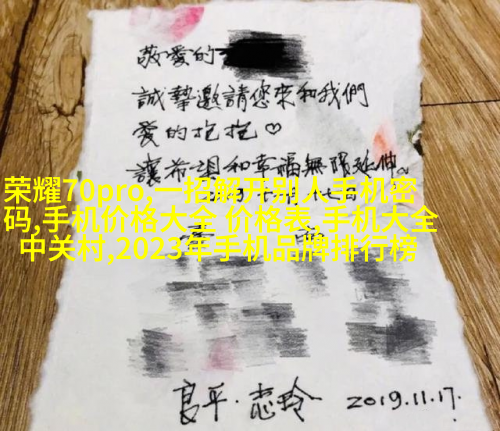 敬愛的
誠摯邀請您來和我們
愛的抱抱♡
讓希望和幸福無限延伸。
荣耀70pro,一招解开别人手机密
码,手机价格大全 价格表,手机大全
中关村,2023年手机品牌排行榜
良平·志玲 2019.11.17.